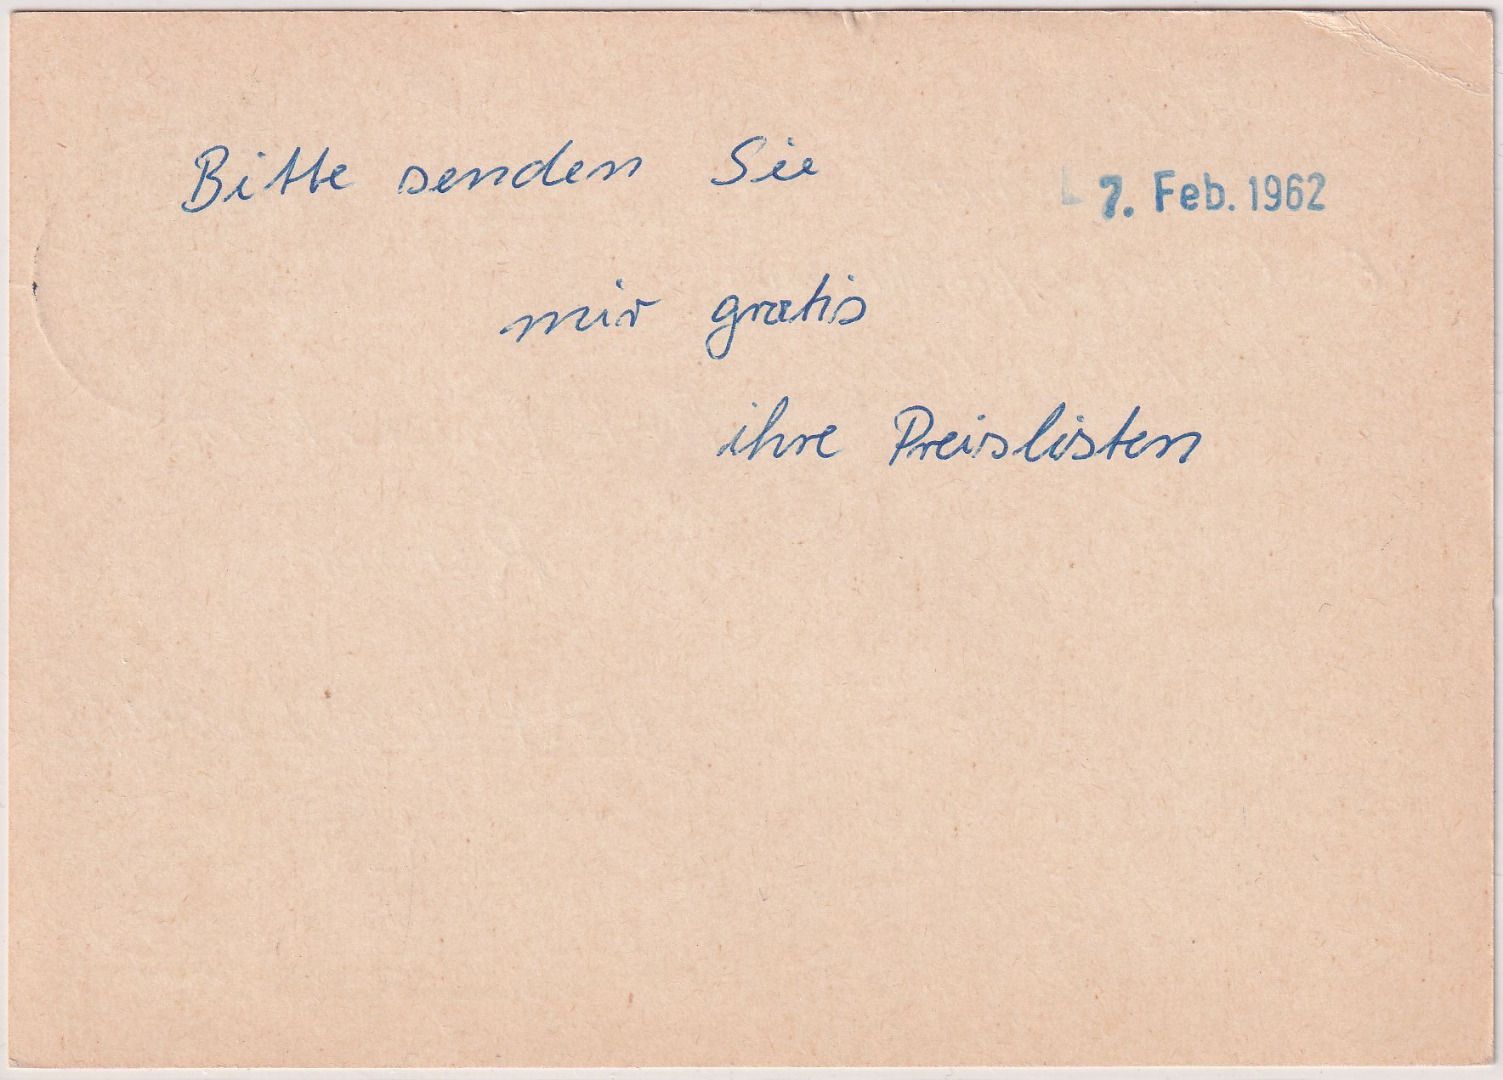 Bitte senden Sie
7. Feb. 1962
mir gratis
ihre Preislisten